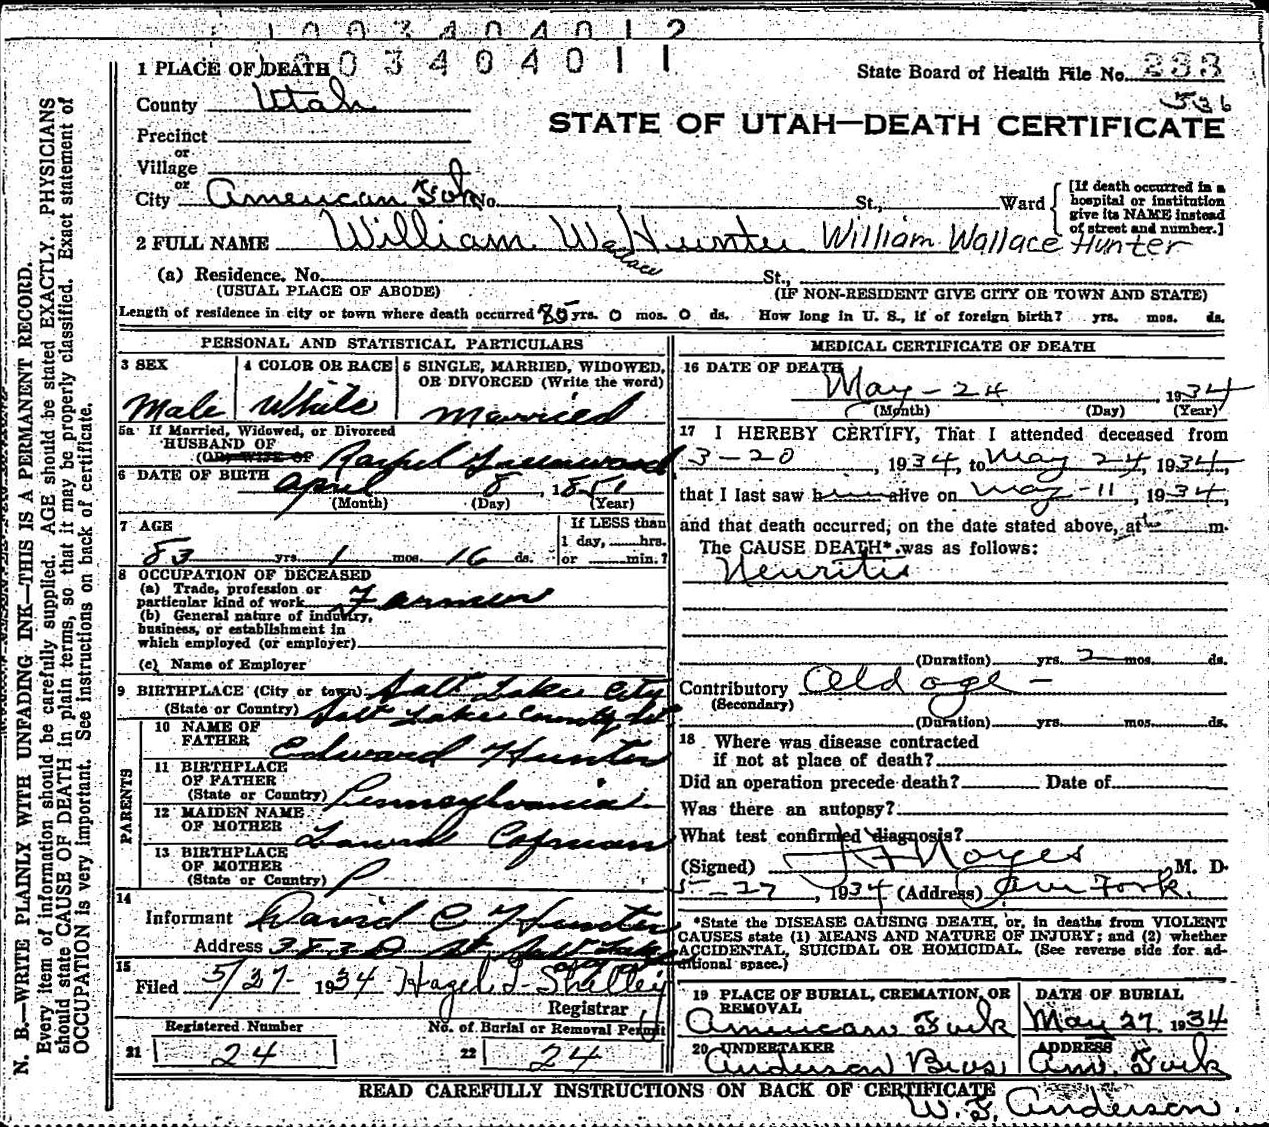 1003404012
1003404011
1 PLACE OF DEATH
State Board of Health File No. 233
536
County Utah
STATE OF UTAH—DEATH CERTIFICATE
Precinct
or
Village
or
City American Fork No. , St., Ward
[If death occurred in a hospital or institution give its NAME instead of street and number.]
2 FULL NAME William W. Hunter William Wallace Hunter
Wallace
(a) Residence. No. St.,
(USUAL PLACE OF ABODE) (IF NON-RESIDENT GIVE CITY OR TOWN AND STATE)
Length of residence in city or town where death occurred yrs. 0 mos. 0 ds. How long in U. S., if of foreign birth? yrs. mos. ds.
PERSONAL AND STATISTICAL PARTICULARS
3 SEX
Male
4 COLOR OR RACE
White
5 SINGLE, MARRIED, WIDOWED,
OR DIVORCED (Write the word)
Married
5a If Married, Widowed, or Divorced
HUSBAND OF
(OR) WIFE OF Greenwood
6 DATE OF BIRTH April 8, 1851
(Month) (Day) (Year)
7 AGE
83 yrs. 1 mos. 16 ds.
If LESS than
1 day, hrs.
or min.?
8 OCCUPATION OF DECEASED
(a) Trade, profession or
particular kind of work Farmer
(b) General nature of industry,
business, or establishment in
which employed (or employer)
(c) Name of Employer
9 BIRTHPLACE (City or town) Salt Lake City
(State or Country) Salt Lake County Ut
PARENTS
10 NAME OF
FATHER Edward Hunter
11 BIRTHPLACE
OF FATHER
(State or Country) Pennsylvania
12 MAIDEN NAME
OF MOTHER
13 BIRTHPLACE
OF MOTHER
(State or Country) P
14
Informant David C Hunter
Address St Salt Lake
15
Filed 5/27- 1934 Hazel I. Shelley
Registrar
Registered Number
21 24
No. of Burial or Removal Permit
22 24
MEDICAL CERTIFICATE OF DEATH
16 DATE OF DEATH
May - 24, 1934
(Month) (Day) (Year)
17 I HEREBY CERTIFY, That I attended deceased from
3-20, 1934, to May 24, 1934,
that I last saw h alive on May - 11, 1934,
and that death occurred, on the date stated above, at m.
The CAUSE DEATH* was as follows:
Neuritis
(Duration) yrs. 2 mos. ds.
Contributory Old age -
(Secondary)
(Duration) yrs. mos. ds.
18 Where was disease contracted
if not at place of death?
Did an operation precede death? Date of
Was there an autopsy?
What test confirmed diagnosis?
(Signed) Noyes M. D.
5-27, 1934 (Address) Am Fork.
*State the DISEASE CAUSING DEATH, or, in deaths from VIOLENT
CAUSES state (1) MEANS AND NATURE OF INJURY; and (2) whether
ACCIDENTAL, SUICIDAL OR HOMICIDAL. (See reverse side for ad-
ditional space.)
19 PLACE OF BURIAL, CREMATION, OR
REMOVAL
American Fork
DATE OF BURIAL
May 27. 1934
20 UNDERTAKER
Anderson Bros
ADDRESS
Am. Fork
READ CAREFULLY INSTRUCTIONS ON BACK OF CERTIFICATE
Anderson.
N. B.—WRITE PLAINLY WITH UNFADING INK—THIS IS A PERMANENT RECORD.
Every item of information should be carefully supplied. AGE should be stated EXACTLY. PHYSICIANS
should state CAUSE OF DEATH in plain terms, so that it may be properly classified. Exact statement of
OCCUPATION is very important. See instructions on back of certificate.